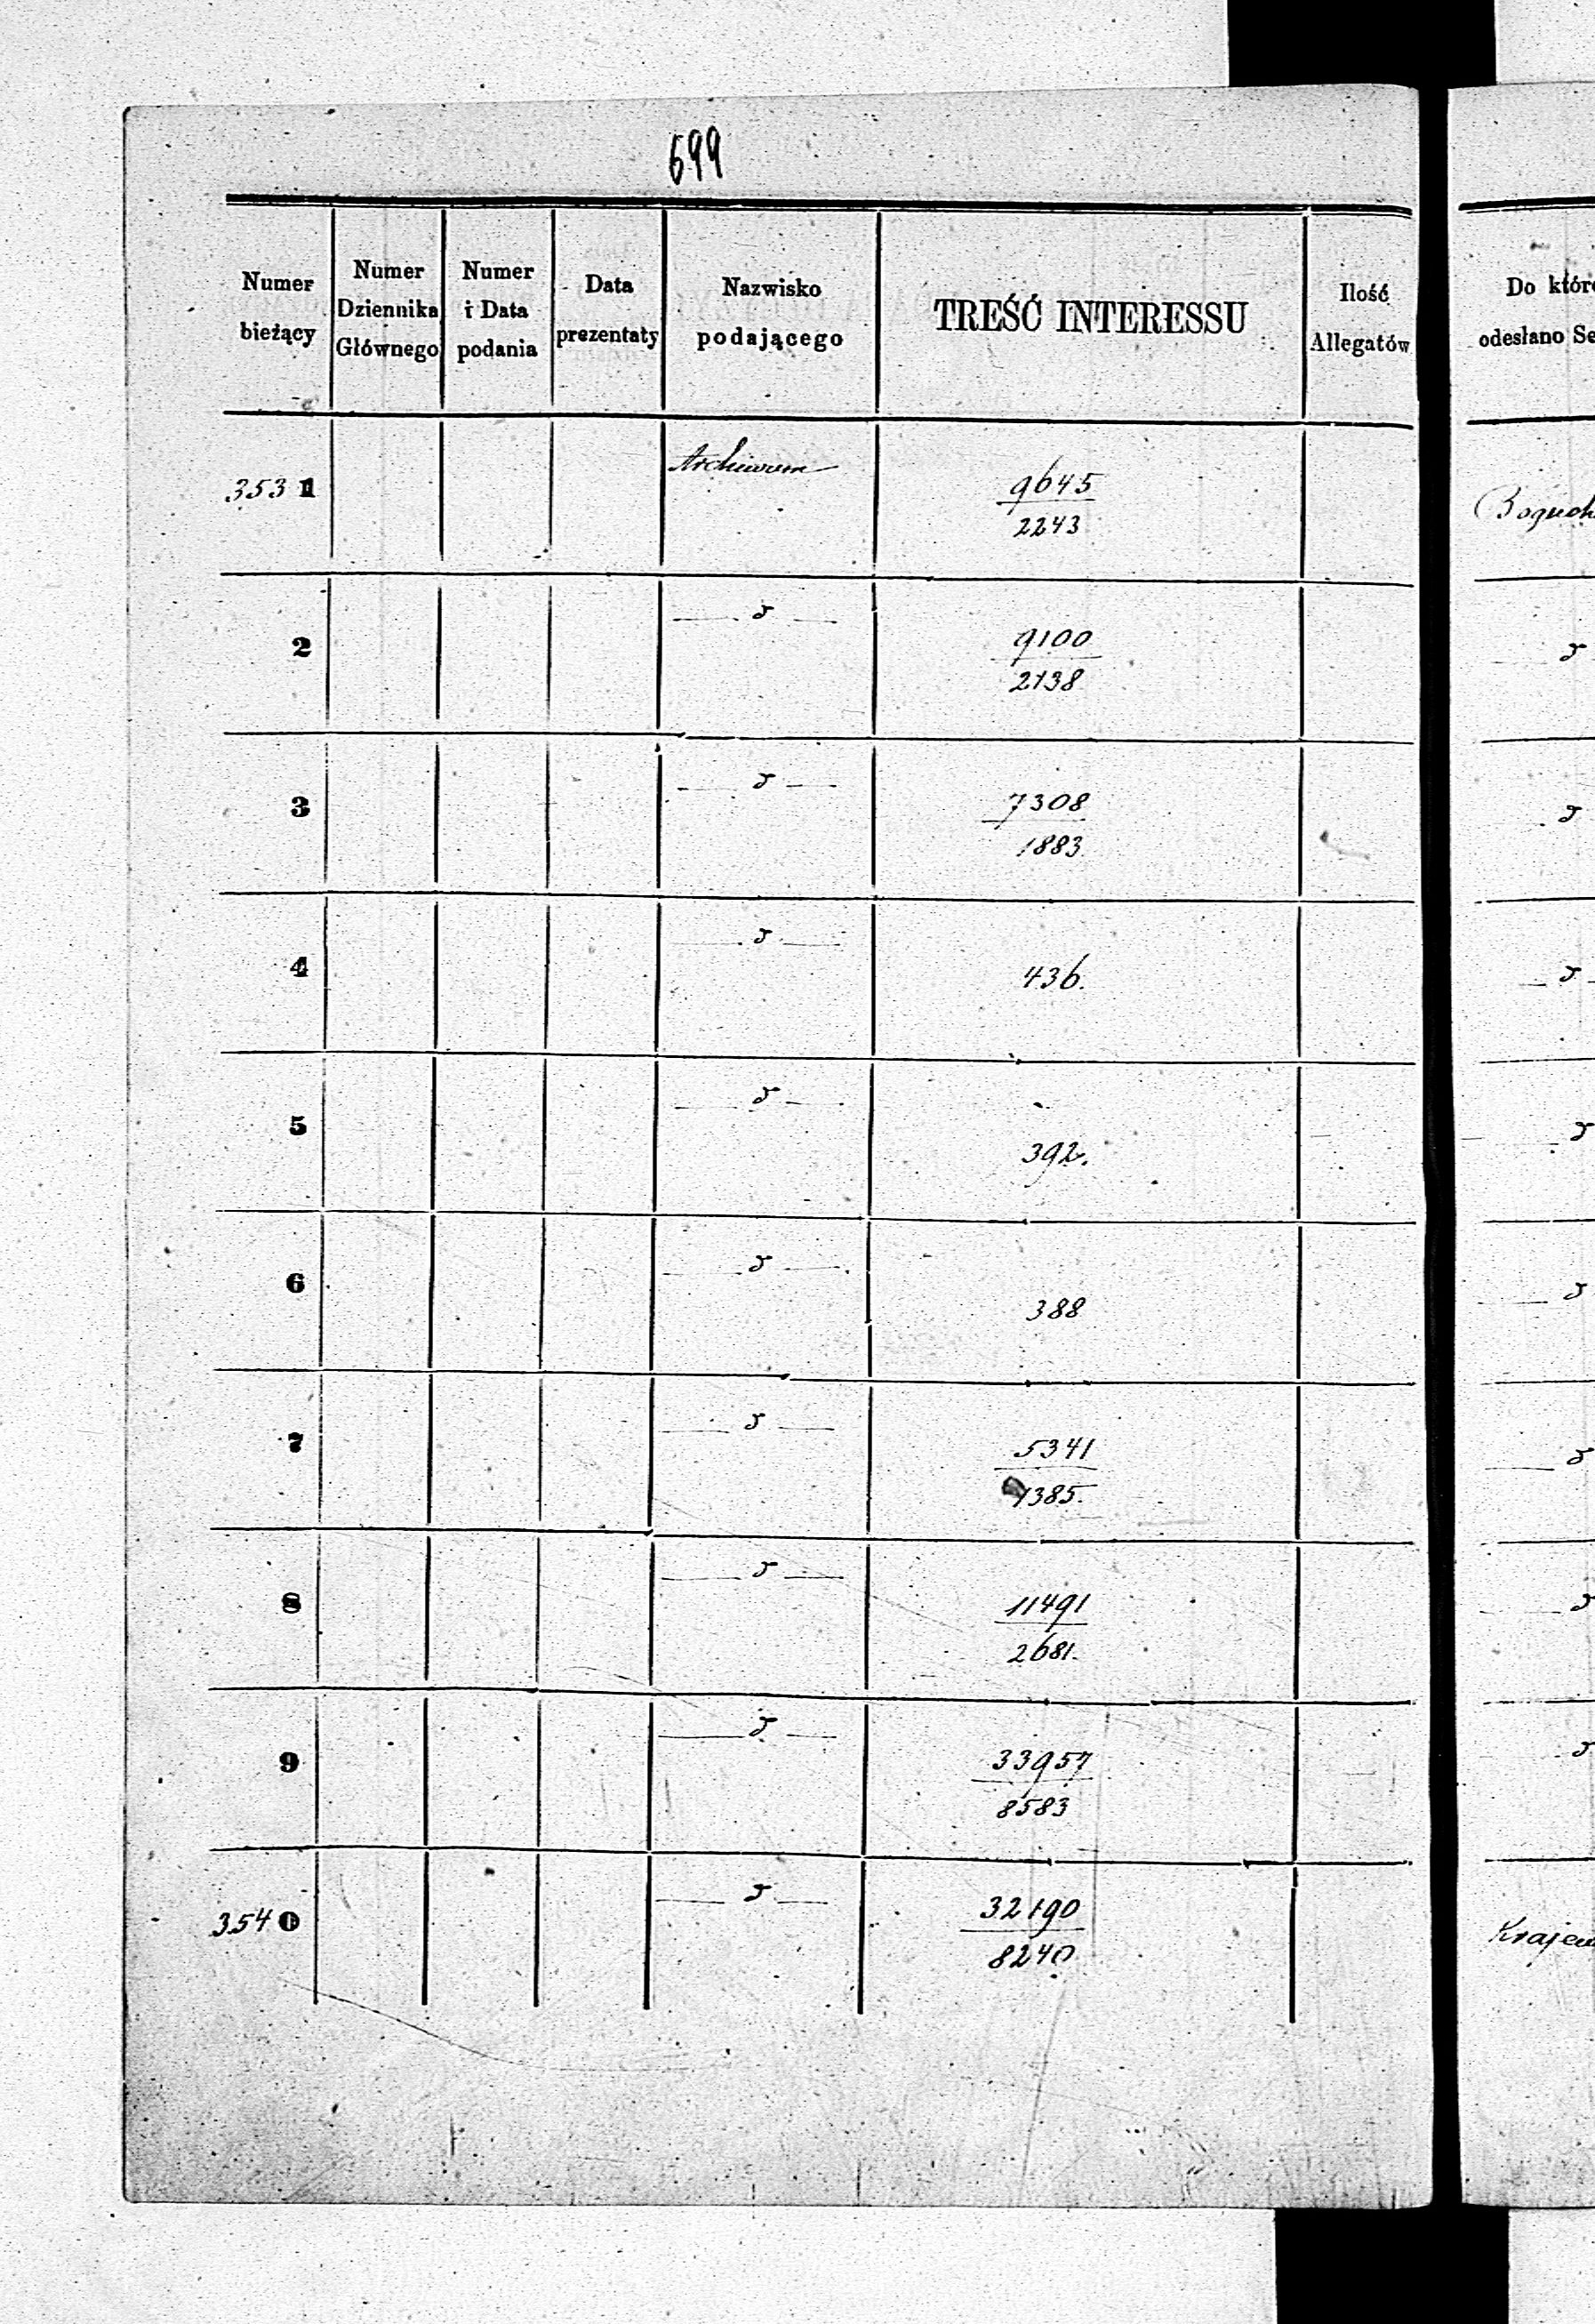 699
Numer bieżący
Numer Dziennika Głównego
Numer i Data podania
Data prezentaty
Nazwisko podającego
TREŚĆ INTERESSU
Ilość Allegatów
Do któr
odesłano Se
3531 Archiwum 9645
2243
2 9100
2138
3 7308
1883
4 436.
5 392.
6 388
7 5341
1385.
8 11491
2681.
9 33957
8583
3540 32190
8240